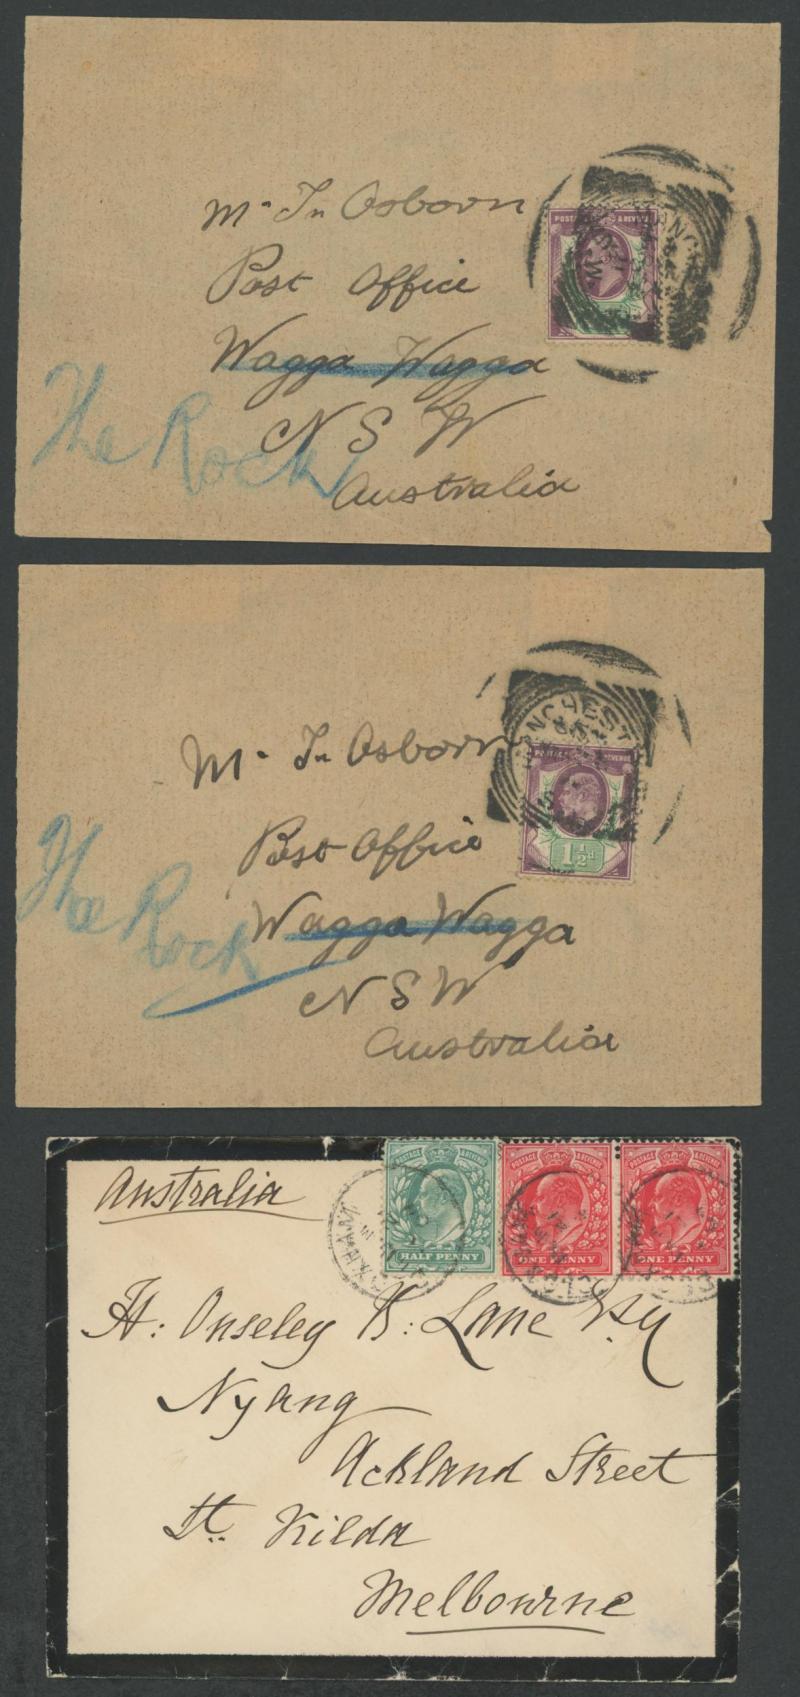 Mr Jn Osborn
Post Office
Wagga Wagga
N S W
Australia
The Rock
POSTAGE & REVENUE
MANCHESTER
Mr Jn Osborn
Post Office
Wagga Wagga
N S W
Australia
The Rock
MANCHESTER
POSTAGE & REVENUE
1½d
Australia
POSTAGE & REVENUE
HALF PENNY
POSTAGE & REVENUE
ONE PENNY
POSTAGE & REVENUE
ONE PENNY
H: Onseley B: Lane Esq
Nyang
Ackland Street
St. Kilda
Melbourne